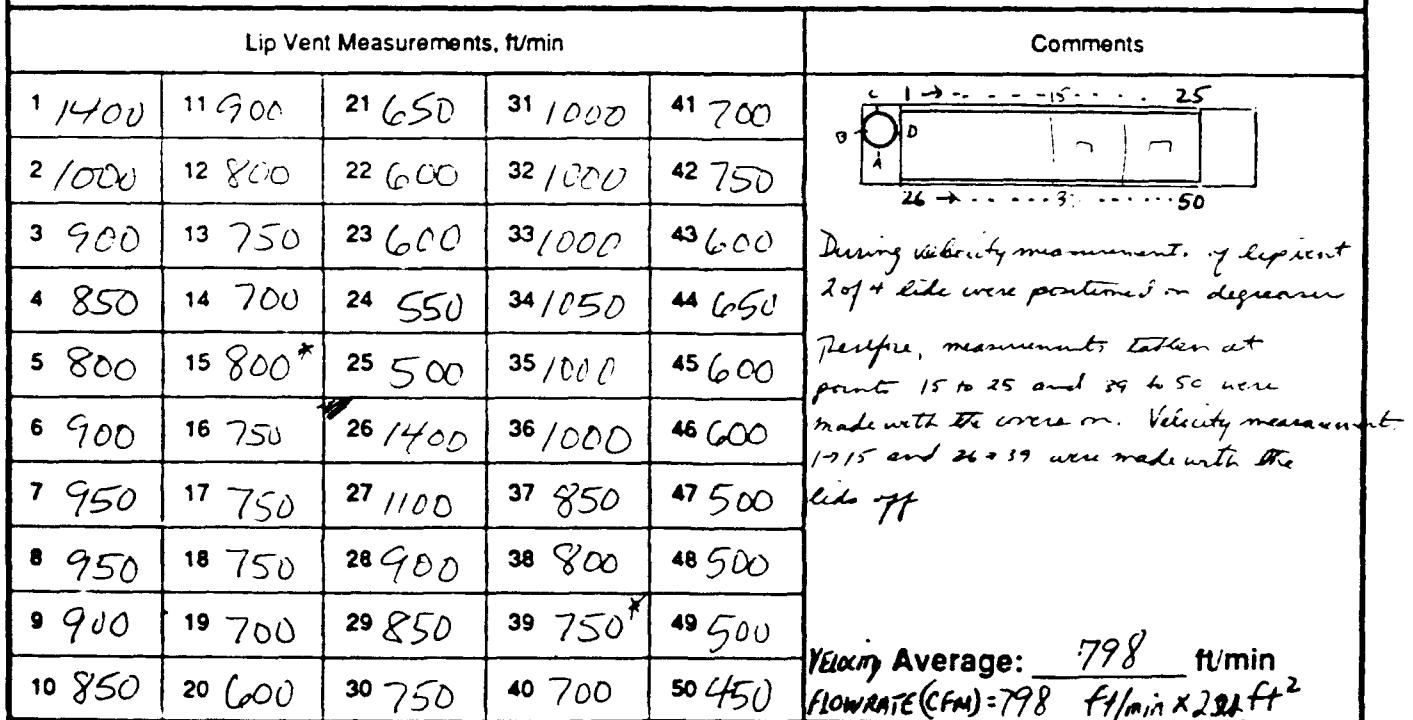 Lip Vent Measurements, ft/min
Comments
1 1400 11 900 21 650 31 1000 41 700
2 1000 12 800 22 600 32 1000 42 750
3 900 13 750 23 600 33 1000 43 600
4 850 14 700 24 550 34 1050 44 650
5 800 15 800* 25 500 35 1000 45 600
6 900 16 750 26 1400 36 1000 46 600
7 950 17 750 27 1100 37 850 47 500
8 950 18 750 28 900 38 800 48 500
9 900 19 700 29 850 39 750* 49 500
10 850 20 600 30 750 40 700 50 450
C 1 → - - - -15- - - . 25
B D
A
26 → - - - - - - - - - 50
During velocity measurement. of lip vent
2 of 4 lids were positioned on degreaser
measurements taken at
points 15 to 25 and 39 to 50 were
made with the covers on. Velocity measurement
1→15 and 26 → 39 were made with the
lids off
VELOCITY Average: 798 ft/min
FLOWRATE (CFM) = 798 ft/min x ft²